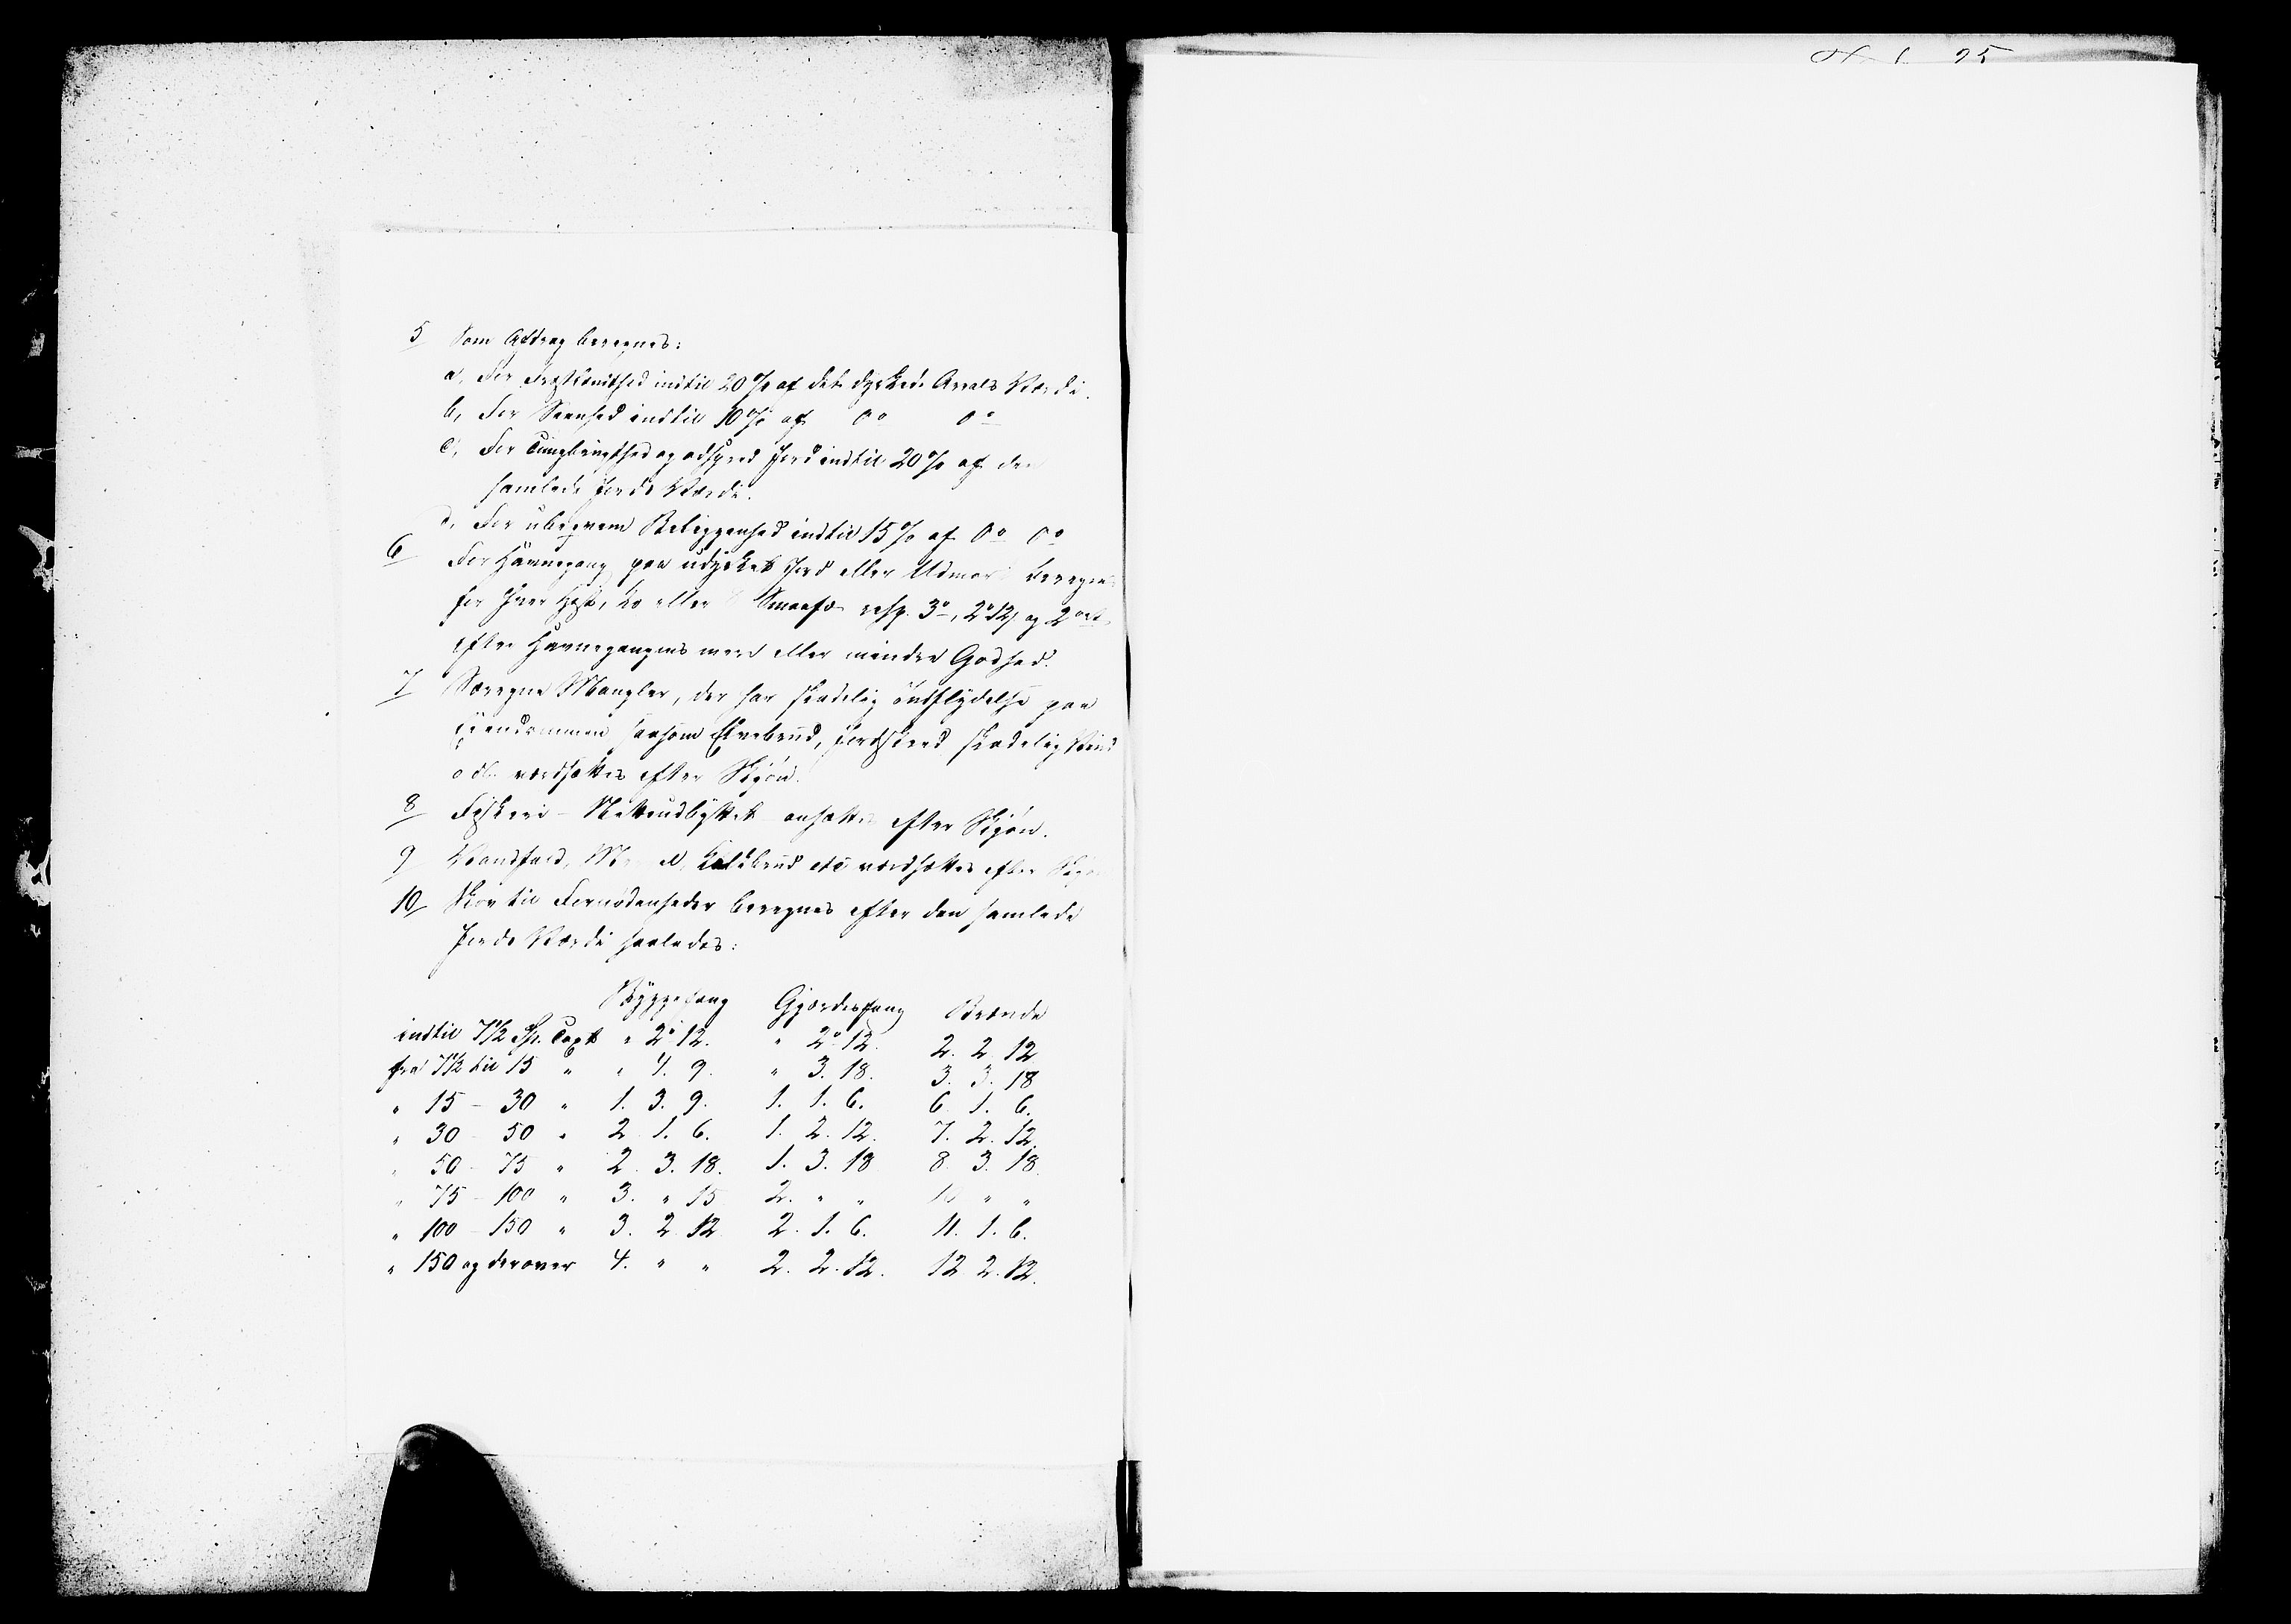 5 Som Afdrag beregnes:
a, For Frostlændthed indtil 20 % af det dyrkede Areals Værdi.
b, For Seenhed indtil 10 % af Do Do
c, For Tungbrugthed og adspred Jord indtil 20 % af den
samlede Jords Værdi.
d, For ubeqvem Beliggenhed indtil 15 % af Do Do
6 For Havnegang paa udyrket Jord eller Udmark beregnes
for hver Hest, Ko eller Smaafæ resp. 3 o, 2 o 12 og 2 ort
efter Havnegangens mere eller mindre Godhed.
7 Særegne Mangler, der har skadelig Indflydelse paa
Eiendommen saasom Elvebrud, Jordskred skadelig Vind
o dl. værdsættes efter Skjøn.
8 Fiskeri - Nettoudbyttet ansættes efter Skjøn.
9 Vandfald, Kalkbrud etc værdsættes efter Skjøn
10 Skov til Fornødenheder beregnes efter den samlede
Jords Værdi saaledes:
Byggefang Gjærdesfang Brænde
indtil 7½ Sp. Taxt " 2 o 12. " 2 o 12. 2. 2. 12
fra 7½ til 15 " " 4. 9. " 3. 18. 3. 3. 18
" 15 - 30 " 1. 3. 9. 1. 1. 6. 6. 1. 6.
" 30 - 50 " 2. 1. 6. 1. 2. 12. 7. 2. 12.
" 50 - 75 " 2. 3. 18. 1. 3. 18 8. 3. 18.
" 75 - 100 " 3. " 15 2. " " 10 " "
" 100 - 150 " 3. 2. 12 2. 1. 6. 11. 1. 6.
" 150 og derover 4. " " 2. 2. 12. 12 2. 12.